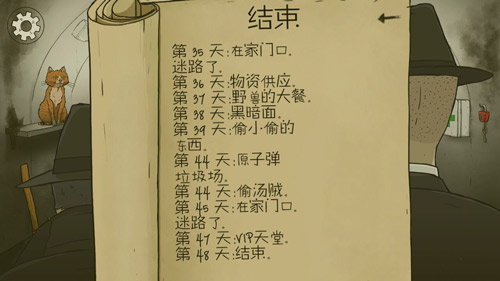 结束
第 35 天:在家门口.
迷路了.
第 36 天:物资供应.
第 37 天:野兽的大餐.
第 38 天:黑暗面.
第 39 天:偷小偷的
东西.
第 44 天:原子弹
垃圾场.
第 44 天:偷汤贼.
第 45 天:在家门口.
迷路了.
第 47 天:VIP天堂.
第 48 天:结束.